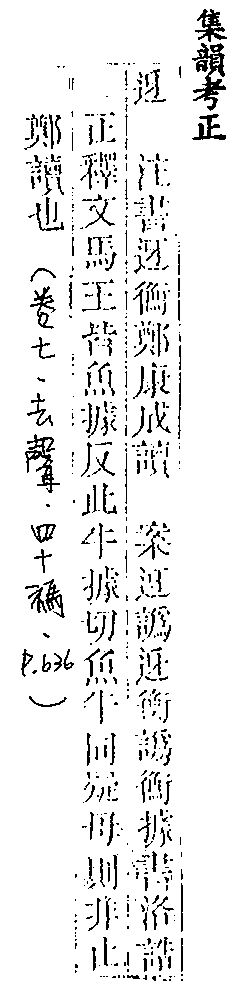 集韻考正
迓　注書迓衡鄭康成讀　案迓譌迓衡譌衡據書洛誥
正釋文馬王皆魚據反此牛據切魚牛同疑母則非止
鄭讀也（卷七、去聲、四十禡、P.636）